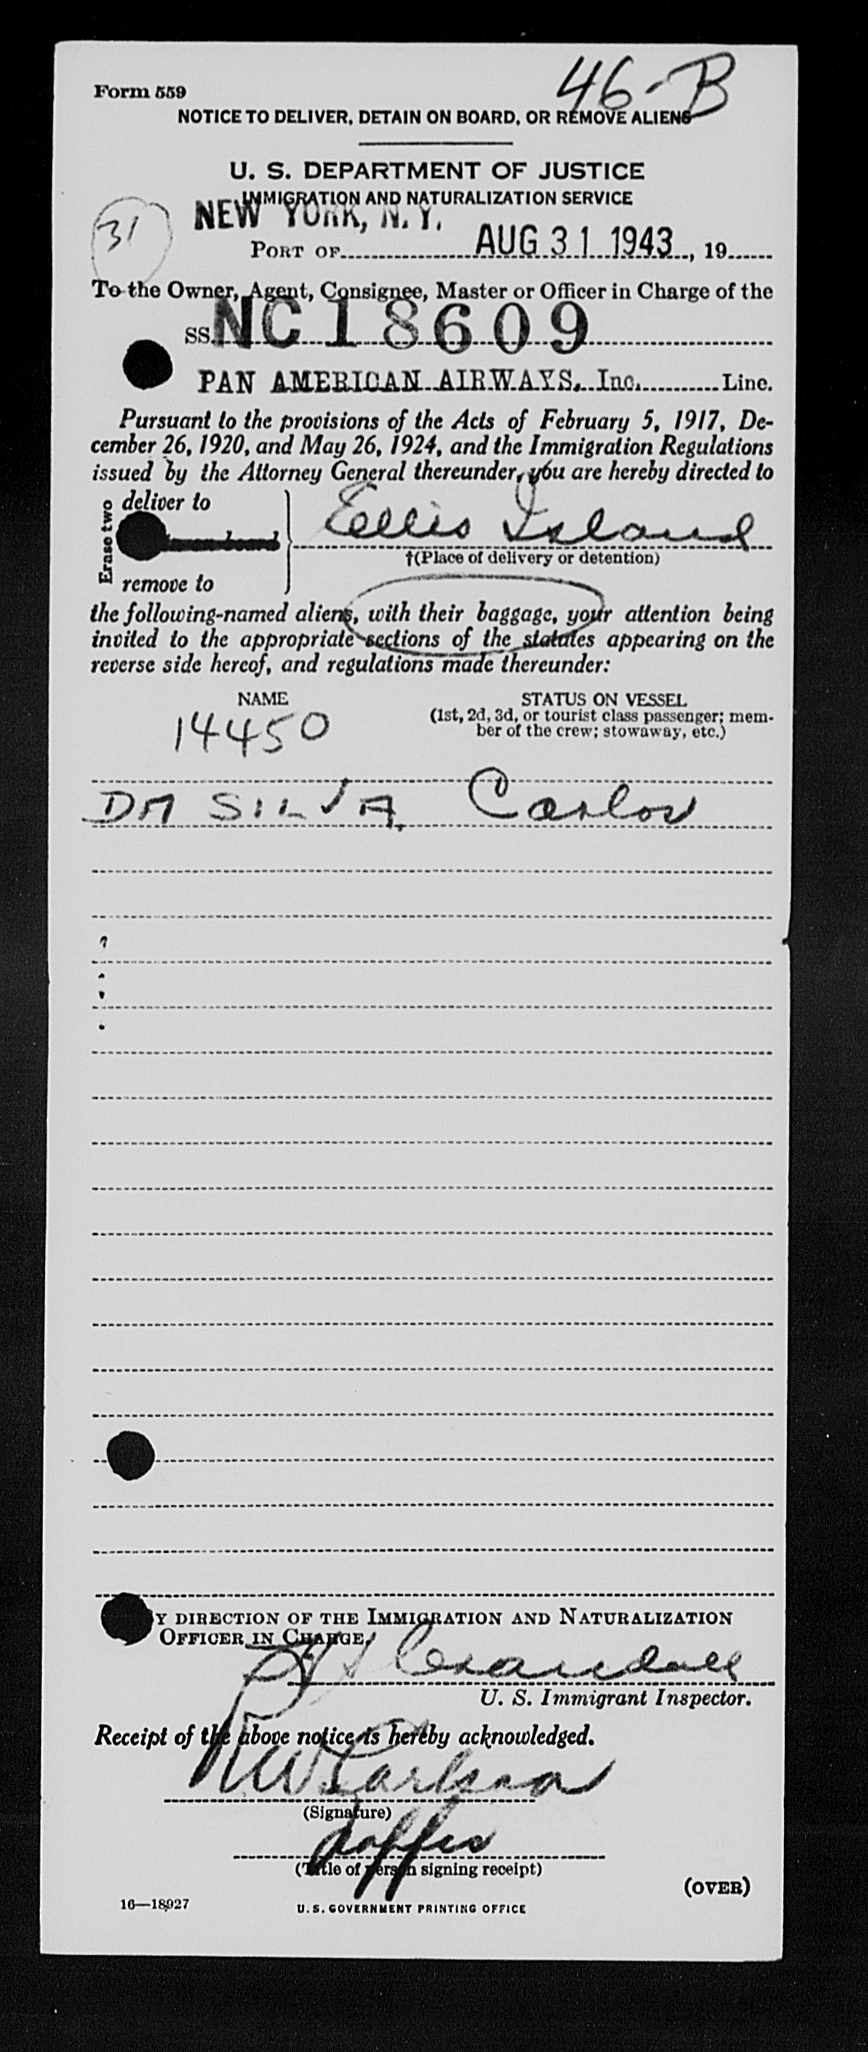 46-B
Form 559
NOTICE TO DELIVER, DETAIN ON BOARD, OR REMOVE ALIENS
U. S. DEPARTMENT OF JUSTICE
IMMIGRATION AND NATURALIZATION SERVICE
31
NEW YORK, N. Y.
PORT OF AUG 31 1943, 19
To the Owner, Agent, Consignee, Master or Officer in Charge of the
SS. NC 18609
PAN AMERICAN AIRWAYS, Inc. Line.
Pursuant to the provisions of the Acts of February 5, 1917, De-
cember 26, 1920, and May 26, 1924, and the Immigration Regulations
issued by the Attorney General thereunder, you are hereby directed to
Erase two
deliver to
Ellis Island
†(Place of delivery or detention)
remove to
the following-named aliens, with their baggage, your attention being
invited to the appropriate sections of the statutes appearing on the
reverse side hereof, and regulations made thereunder:
NAME
STATUS ON VESSEL
(1st, 2d, 3d, or tourist class passenger; mem-
ber of the crew; stowaway, etc.)
14450
DA SILVA, Carlos
Y DIRECTION OF THE IMMIGRATION AND NATURALIZATION
OFFICER IN CHARGE,
Crandall
U. S. Immigrant Inspector.
Receipt of the above notice is hereby acknowledged.
RW Carlson
(Signature)
(Title of person signing receipt)
(OVER)
16—18927
U. S. GOVERNMENT PRINTING OFFICE